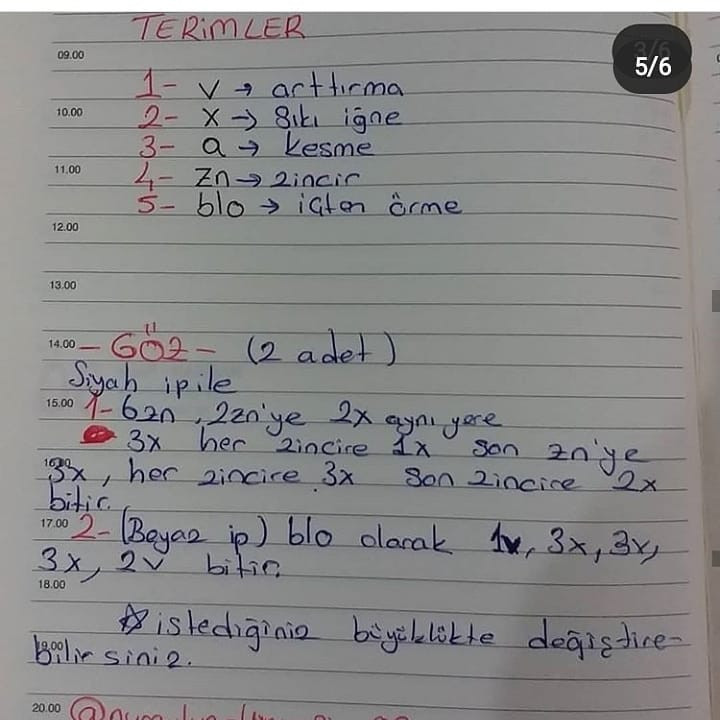 TERİMLER
5/6
09.00
1- v → arttırma
10.00 2- x → Sıkı iğne
3- a → kesme
11.00 4- zn → zincir
5- blo → içten örme
12.00
13.00
14.00 - GÖZ - (2 adet)
Siyah ip ile
15.00 1- 6zn, 2zn'ye 2x aynı yere
3x her zincire 1x son zn'ye
3x, her zincire 3x son zincire 2x
bitir.
17.00 2- (Beyaz ip) blo olarak 1v, 3x, 3v,
3x, 2v bitir.
18.00
☆ istediğiniz büyüklükte değiştire-
bilirsiniz.
20.00